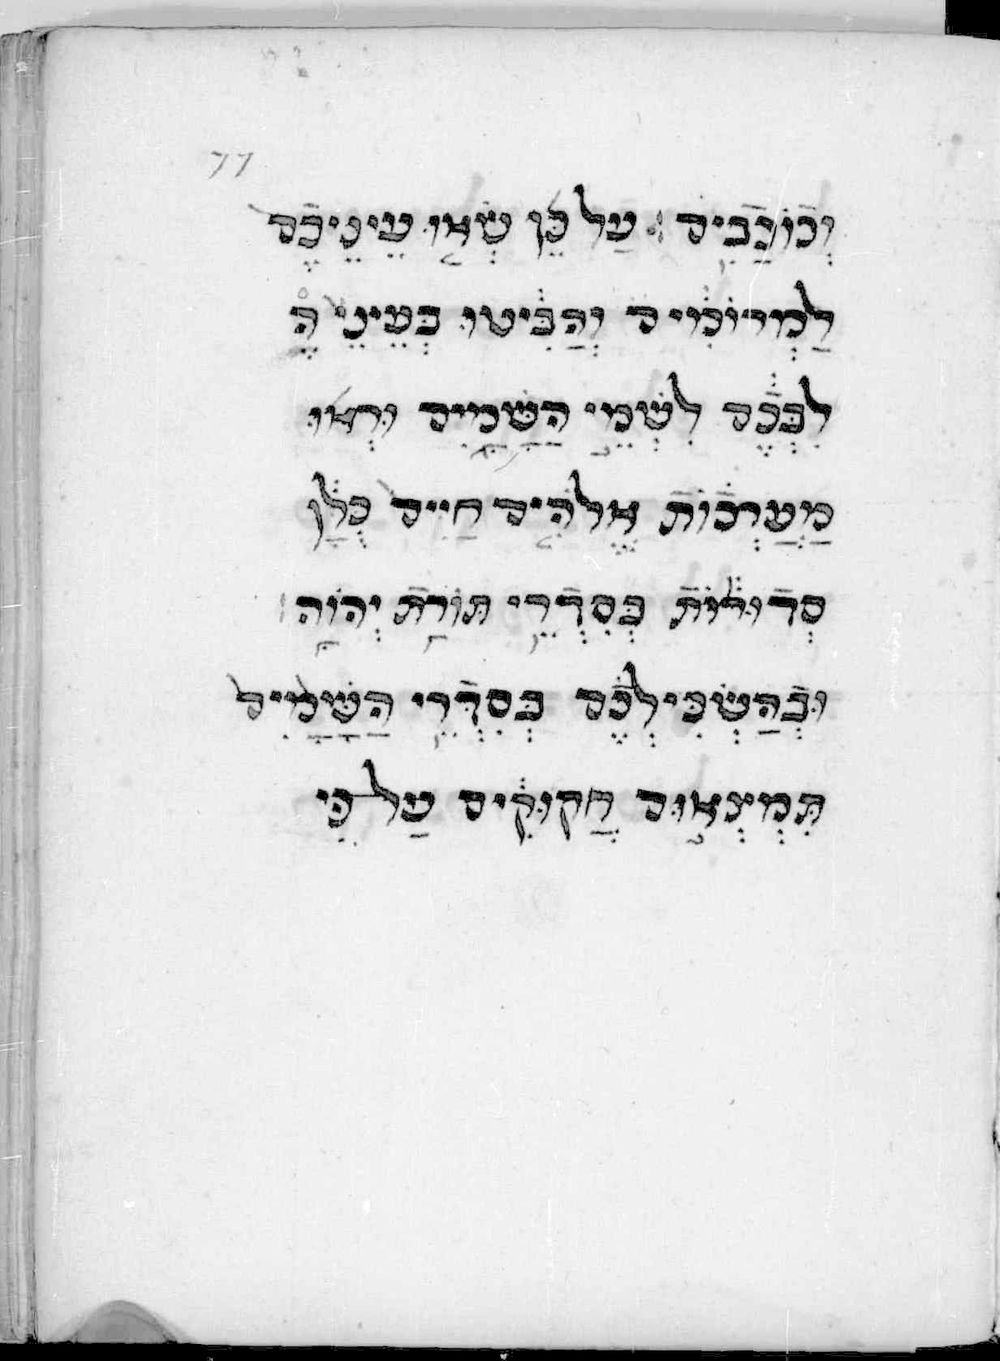 77
וְכוֹכָבִים ׃ עַל כֵּן שְׂאוּ עֵינֵיכֶם
לַמְרוֹמִים וְהַבִּיטוּ בְּעֵינֵי הֶ
לִבְּכֶם לִשְׁמֵי הַשָּׁמַיִם וּרְאוּ
מַעַרְכוֹת אֱלֹהִים חַיִּים כֻּלָּן
סְדוּרוֹת בְּסִדְרֵי תּוֹרַת יְהוָֹה
וּבְהַשְׂכִּילְכֶם בְּסִדְרֵי הַשָּׁמַיִם
תִּמְצְאוּם חֲקוּקִים עַל פִּי